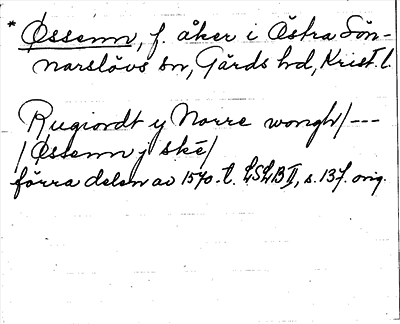 * Øssenn, f. åker i Östra Sön-
narslövs sn, Gärds hd, Krist. l.
Rugiordt y Norre wongh/ ---
/Øssenn j ské/
förra delen av 1570-t. LSLB II, s. 137. orig.